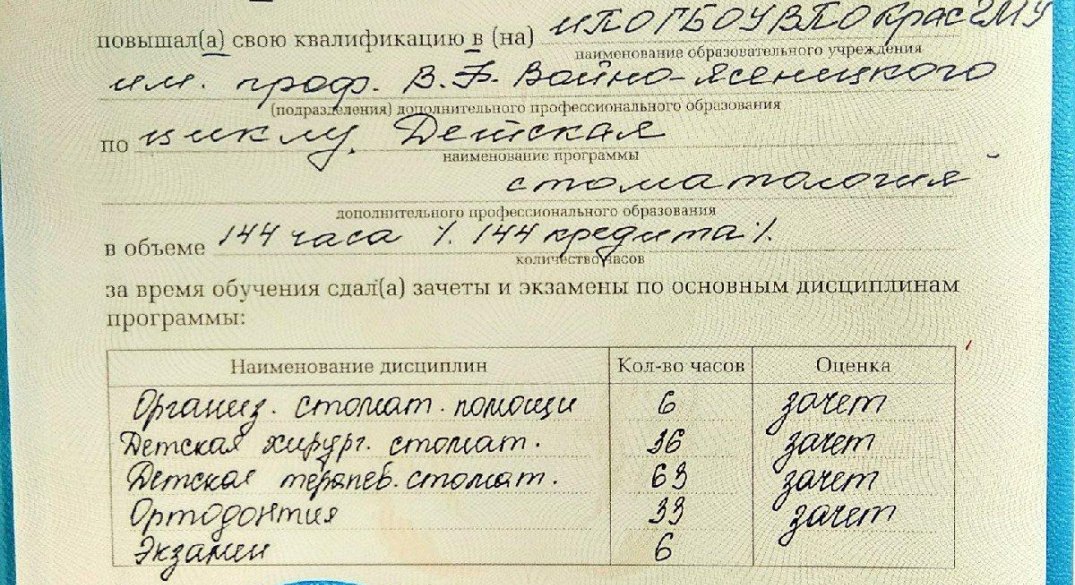 повышал(а) свою квалификацию в (на) ИПО ГБОУ ВПО КрасГМУ
наименование образовательного учреждения
им. проф. В.Ф. Войно-Ясенецкого
(подразделения) дополнительного профессионального образования
по циклу. Детская
наименование программы
стоматология
дополнительного профессионального образования
в объеме 144 часа \. 144 кредита \.
количество часов
за время обучения сдал(а) зачеты и экзамены по основным дисциплинам
программы:
Наименование дисциплин Кол-во часов Оценка
Организ. стомат. помощи 6 зачет
Детская хирург. стомат. 36 зачет
Детская терапев. стомат. 63 зачет
Ортодонтия 33 зачет
Экзамен 6